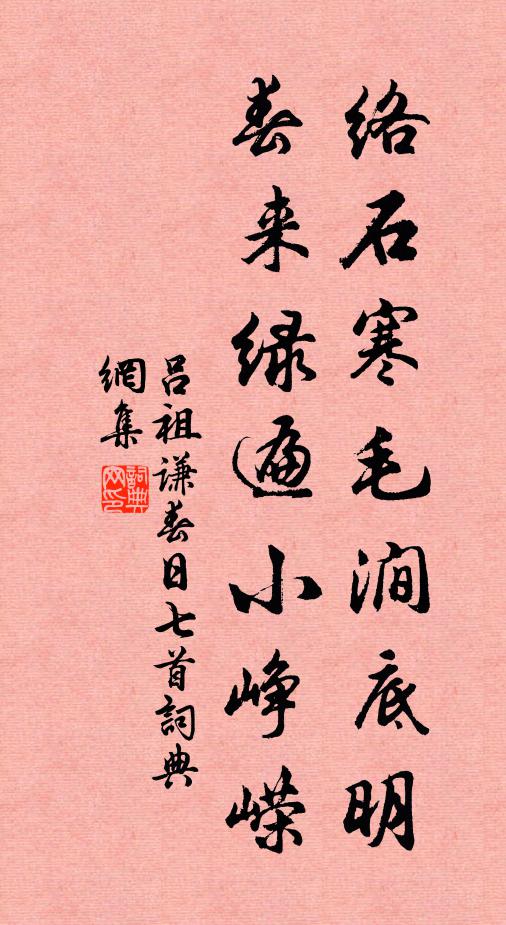 络石寒毛涧底明
春来绿遍小峥嵘
吕祖谦春日七首詞典
網集
詞典網印